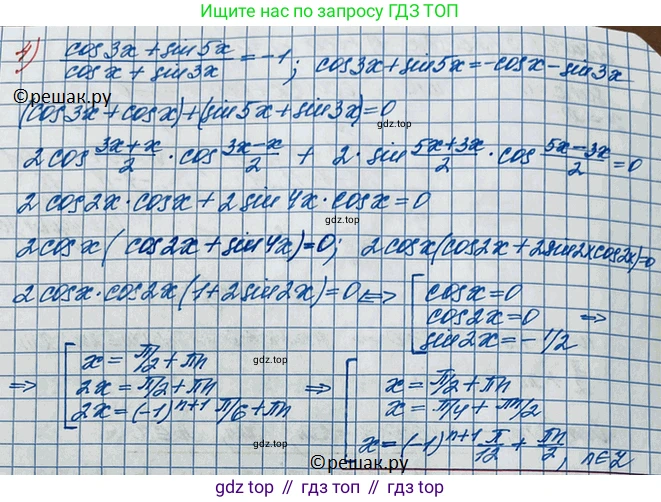 Ищите нас по запросу ГДЗ ТОП
4) (cos3x + sin5x)/(cosx + sin3x) = -1; cos3x + sin5x = -cosx - sin3x
©решак.ру
(cos3x + cosx) + (sin5x + sin3x) = 0
gdz.top
2cos (3x+x)/2 · cos (3x-x)/2 + 2 · sin (5x+3x)/2 · cos (5x-3x)/2 = 0
2cos2x · cosx + 2sin4x · cosx = 0
gdz.top
2cosx(cos2x + sin4x) = 0; 2cosx(cos2x + 2sin2xcos2x) = 0
©решак.ру
2cosx · cos2x(1 + 2sin2x) = 0 <=> [ cosx = 0
cos2x = 0 =>
sin2x = -1/2
gdz.top
=> [ x = π/2 + πn => [ x = π/2 + πn
2x = π/2 + πn x = π/4 + πn/2
2x = (-1)ⁿ⁺¹ π/6 + πn x = (-1)ⁿ⁺¹ π/12 + πn/2, n∈Z
©решак.ру
gdz.top
gdz top // гдз топ // gdz.top